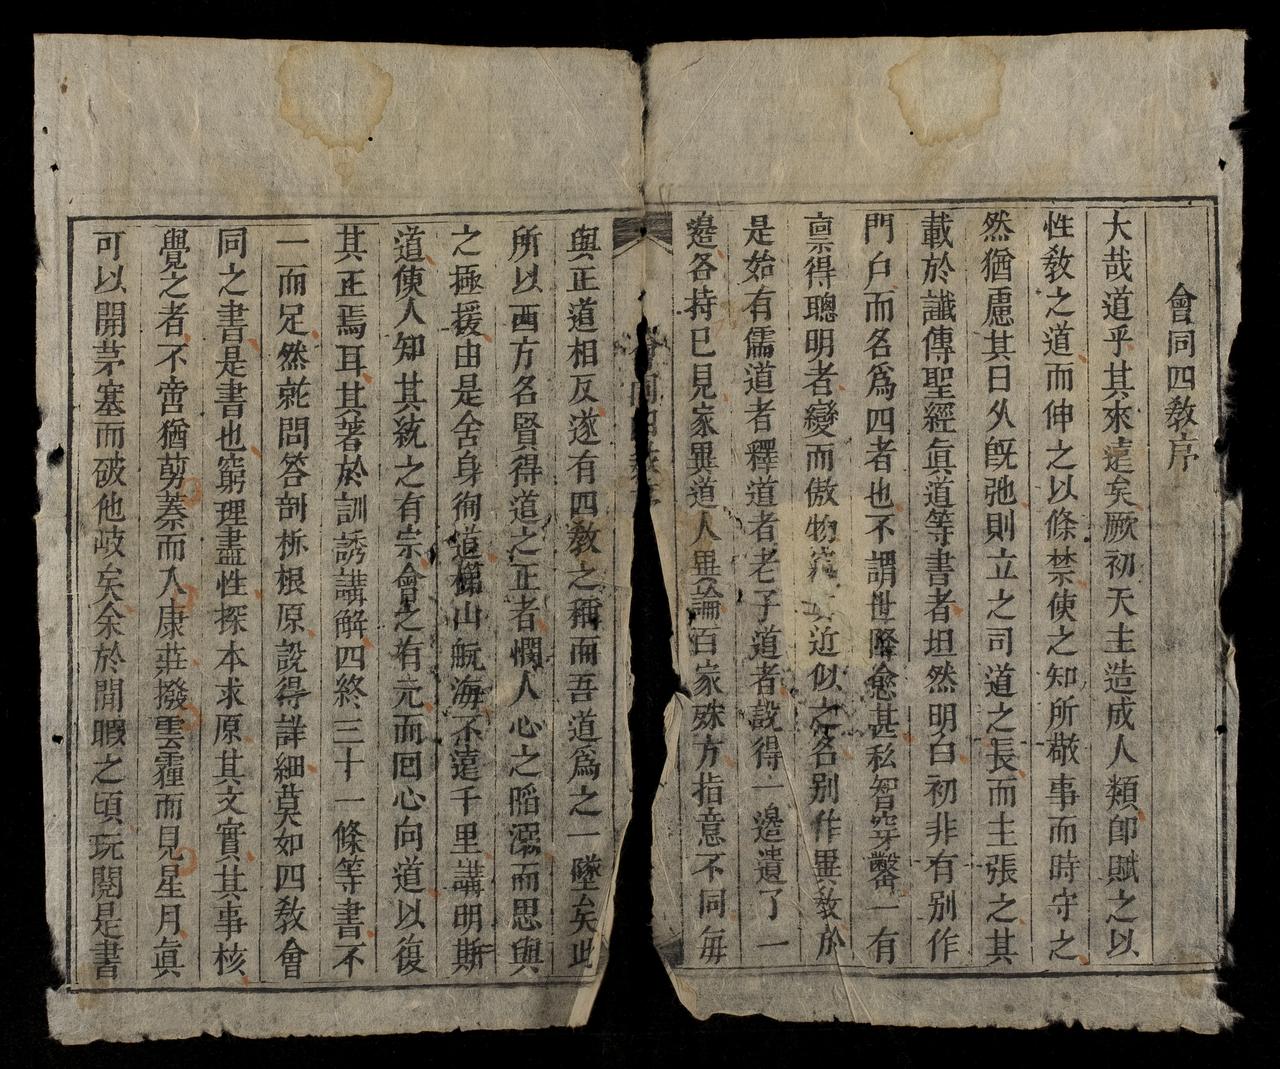 會同四敎序
大哉道乎其來遠矣厥初天主造成人類卽賦之以
性敎之道而伸之以條禁使之知所敬事而時守之
然猶慮其日久旣弛則立之司道之長而主張之其
載於讖傳聖經眞道等書者坦然明白初非有別作
門戶而名爲四者也不謂世降愈甚私智穿鑿一有
禀得聰明者變而傲物 近似之名別作異敎於
是始有儒道者釋道者老子道者設得一邊遺了一
邊各持己見家異道人異論百家殊方指意不同每
會同四敎序
與正道相反遂有四敎之稱而吾道爲之一墜矣此
所以西方名賢得道之正者憫人心之陷溺而思與
之極援由是舍身徇道梯山航海不遠千里講明斯
道使人知其統之有宗會之有元而回心向道以復
其正焉耳其著於訓誘講解四終三十一條等書不
一而足然就問答剖析根原設得詳細莫如四敎會
同之書是書也窮理盡性探本求原其文實其事核
覺之者不啻猶剪蓁而入康莊撥雲霾而見星月眞
可以開茅塞而破他岐矣余於閒暇之頃玩閱是書